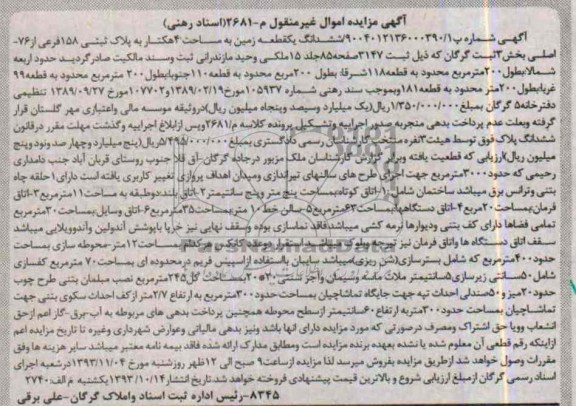 آگهی مزایده اموال غیرمنقول م-۲۶۸۱(اسناد رهنی)
آگهی شماره پ۹۰۰۴۰۱۲۱۳۶۰۰۰۳۹۰/۱ششدانگ یکقطعه زمین به مساحت ۴هکتار به پلاک ثبتی ۱۵۸فرعی از۷۶-
اصلی بخش۳ثبت گرگان که ذیل ثبت ۳۱۴۷صفحه۸۵جلد ۱۵ملکی وحید مازندرانی ثبت وسند مالکیت صادرگردید حدود اربعه
شمالابطول۲۰۰مترمربع محدود به قطعه۱۱۸شرقا: بطول ۲۰۰مربع محدود به قطعه۱۱۰جنوبابطول۲۰۰ مترمربع محدود به قطعه۹۹
غربابطول۲۰۰متر محدود به قطعه۱۸۱وبموجب سند رهنی شماره ۱۰۵۹۳۷مورخ۱۳۸۹/۰۲/۱۹و۱۰۷۷۰۲مورخ ۱۳۸۹/۰۹/۲۷ تنظیمی
دفترخانه۵ گرگان بمبلغ۱/۳۵۰/۰۰۰/۰۰۰ریال(یک میلیارد وسیصد وپنجاه میلیون ریال)دروثیقه موسسه مالی واعتباری مهر گلستان قرار
گرفته وبعلت عدم پرداخت بدهی منجربه صدور اجراییه وتشکیل پرونده کلاسه م/۲۶۸۱وپس ازابلاغ اجراییه وگذشت مهلت مقرر درقانون
ششدانگ پلاک فوق توسط هیئت۳نفره منتخب کارشناسان رسمی دادگستری بمبلغ۵/۴۹۵/۰۰۰/۰۰۰ریال(پنج میلیارد وچهار صد ونود وپنج
میلیون ریال)ارزیابی که قطعیت یافته وبرابر گزارش کارشناسان ملک مزبور درجاده گرگان-آق قلا جنوب روستای قربان آباد جنب دامداری
رحیمی که حدود۳۰۰۰مترمربع جهت اجرای طرح های سالنهای تیراندازی ومیدان اهداف پروازی تغییر کاربری یافته است دارای۱حلقه چاه
بتنی وترانس برق میباشد ساختمان شامل ۱-اتاق کوتاه:بمساحت پنج متر وپنج سانتیمتر۲-اتاق بلند:دوطبقه به مساحت۱۱مترمربع۳-اتاق
فرمان:بمساحت۲۰مربع۴-اتاق دستگاهها:بمساحت۶۳مترمربع۵-سالن خط۱۰متر بمساحت۳۵مترمربع۶-اتاق وسایل:بمساحت۳۰مترمربع
تمامی فضاها دارای کف بتنی ودیوارها گرمه کشی میباشد فاقد نماسازی بوده وسقف نهایی نیز خرپا باپوشش آندولین واندوویلایی میباشد
سقف اتاق دستگاه ها واتاق فرمان نیز تیرچه وبلوک میباشد واستقرار دوعدد کانکس هرکدام بمساحت۱۲متر-محوطه سازی بمساحت
حدود۴۰۰مترمربع که شامل بسترسازی(شن ریزی)میباشد سایبان بااستفاده ازاسپیس فریم درمحدوده ای بمساحت۷۰ مترمربع کفسازی
شامل۵۰سانتی زیرسازی۵سانتیمتر ملات ماسه وسیمان واجر سنتی ۳۰*۲۰بمساحت کل۲۴۵مترمربع نصب مبلمان بتنی طرح چوب
حدود۲۰میز و۵صندلی احداث تپه جهت جایگاه تماشاچیان بمساحت حدود۳۰۰مترمربع به ارتفاع ۲/۷متر ازکف احداث سکوی بتنی جهت
تماشاچیان بمساحت حدود۳۰۰متریه ارتفاع ۶۰سانتیمتر ازسطح محوطه همچنین پرداخت بدهی های مربوطه به آب-برق-گاز اعم ازحق
انشعاب وویا حق اشتراک ومصرف درصورتی که مورد مزایده دارای انها باشد ونیز بدهی مالیاتی وعوارض شهرداری وغیره تا تاریخ مزایده اعم
ازاینکه رقم قطعی آن معلوم شده یا نشده بعهده برنده مزایده است ومطابق مدارک ارائه شده فاقد بیمه نامه معتبر میباشد سایر هزینه ها وفق
مقررات وصول خواهد شد ازطریق مزایده بفروش میرسد لذا مزایده ازساعت۹ صبح الی ۱۲ظهر روزشنبه مورخ ۱۳۹۳/۱۱/۰۴درشعبه اجرای
اسناد رسمی گرگان ازمبلغ ارزیابی شروع و بالاترین قیمت پیشنهادی فروخته خواهد شد تاریخ انتشار۱۳۹۳/۱۰/۱۴یکشنبه م الف: ۲۷۴۰
۸۳۴۵-رئیس اداره ثبت اسناد واملاک گرگان-علی برقی